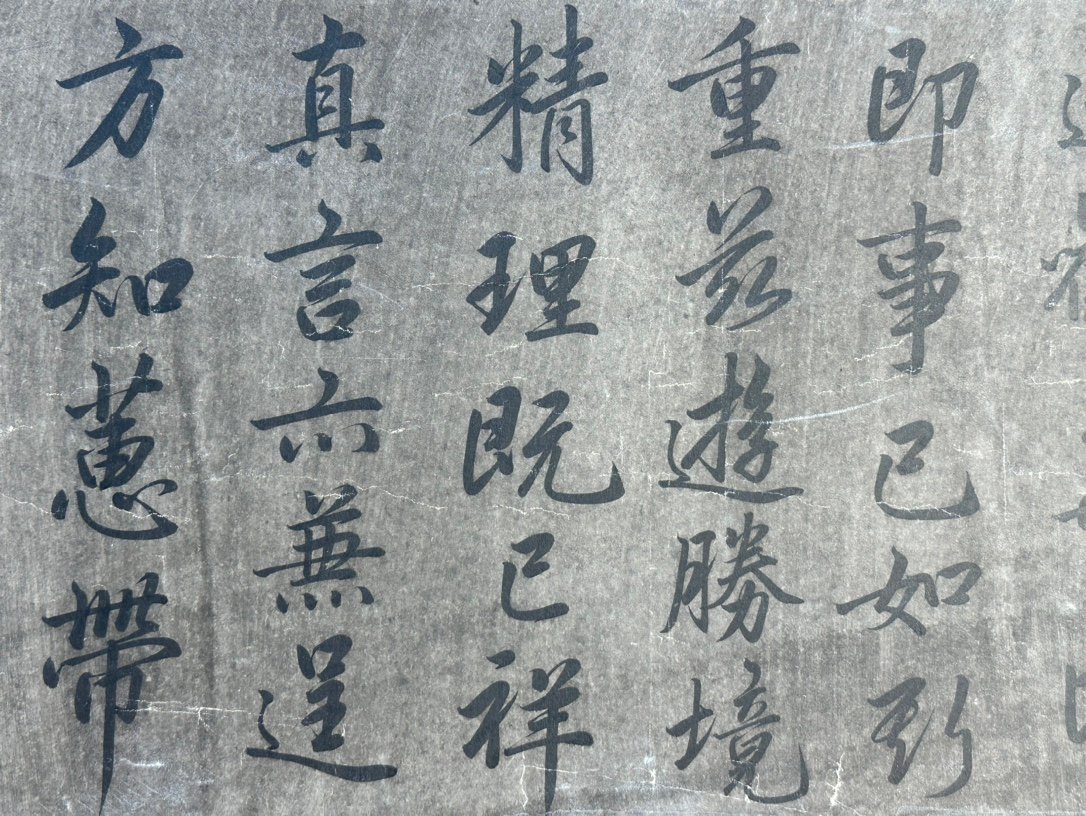 即事已如斯
重茲遊勝境
精理既已祥
真言亦無逞
方知蕙帶